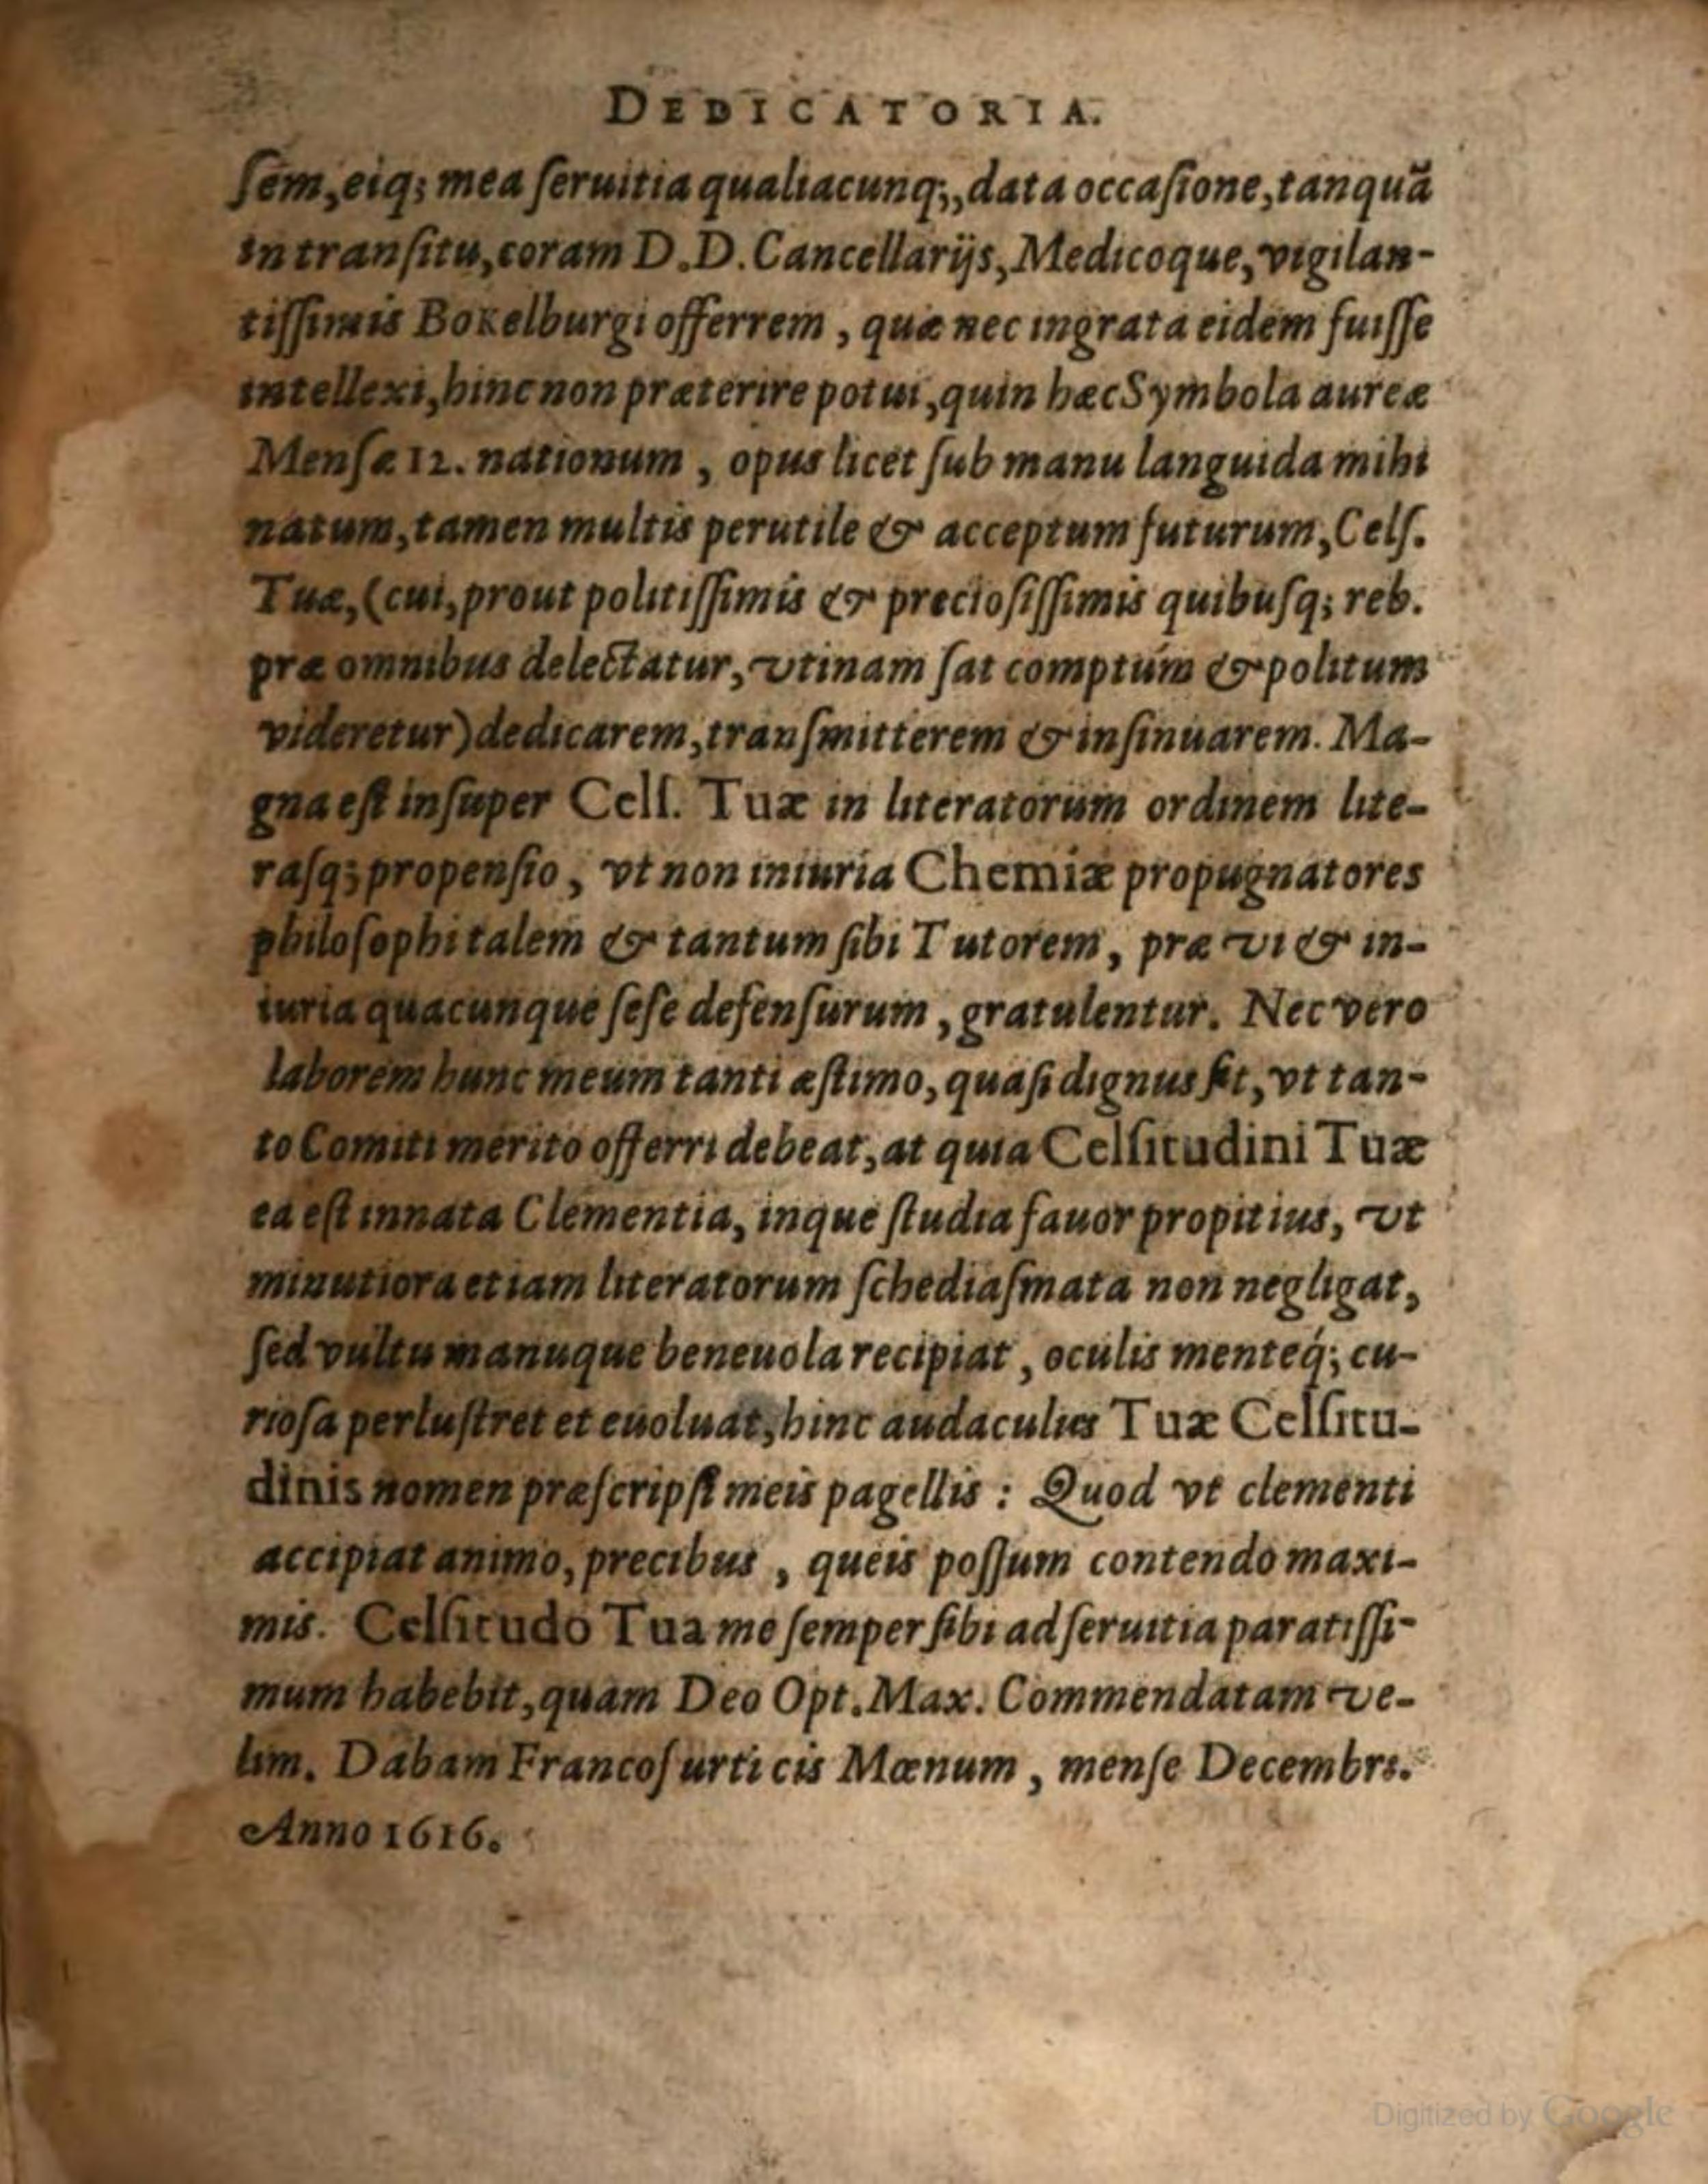 DEDICATORIA.
ſem, eiq; mea ſeruitia qualiacunq;, data occaſione, tanquã
in tranſitu, coram D.D. Cancellarijs, Medicoque, vigilan-
tiſſimis Boxelburgi offerrem, quæ nec ingrata eidem fuiſſe
intellexi, hinc non præterire potui, quin hæc Symbola aureæ
Menſæ 12. nationum, opus licet ſub manu languida mihi
natum, tamen multis perutile & acceptum futurum, Celſ.
Tuæ, (cui, prout politiſſimis & precioſiſſimis quibuſq; reb.
præ omnibus delectatur, vtinam ſat comptúm & politum
videretur) dedicarem, tranſmitterem & inſinuarem. Ma-
gna eſt inſuper Celſ. Tuæ in literatorum ordinem lite-
raſq; propenſio, vt non iniuria Chemiæ propugnatores
philoſophi talem & tantum ſibi Tutorem, præ vi & in-
iuria quacunque ſeſe defenſurum, gratulentur. Nec vero
laborem hunc meum tanti æſtimo, quaſi dignus ſit, vt tan-
to Comiti merito offerri debeat, at quia Celſitudini Tuæ
ea eſt innata Clementia, inque ſtudia fauor propitius, vt
minutiora etiam literatorum ſchediaſmata non negligat,
ſed vultu manuque beneuola recipiat, oculis menteq́; cu-
rioſa perluſtret et euoluat, hinc audaculus Tuæ Celſitu-
dinis nomen præſcripſi meis pagellis : Quod vt clementi
accipiat animo, precibus, queis poſſum contendo maxi-
mis. Celſitudo Tua me ſemper ſibi ad ſeruitia paratiſſi-
mum habebit, quam Deo Opt. Max. Commendatam ve-
lim. Dabam Francofurti cis Mœnum, menſe Decembri.
Anno 1616.
Digitized by Google